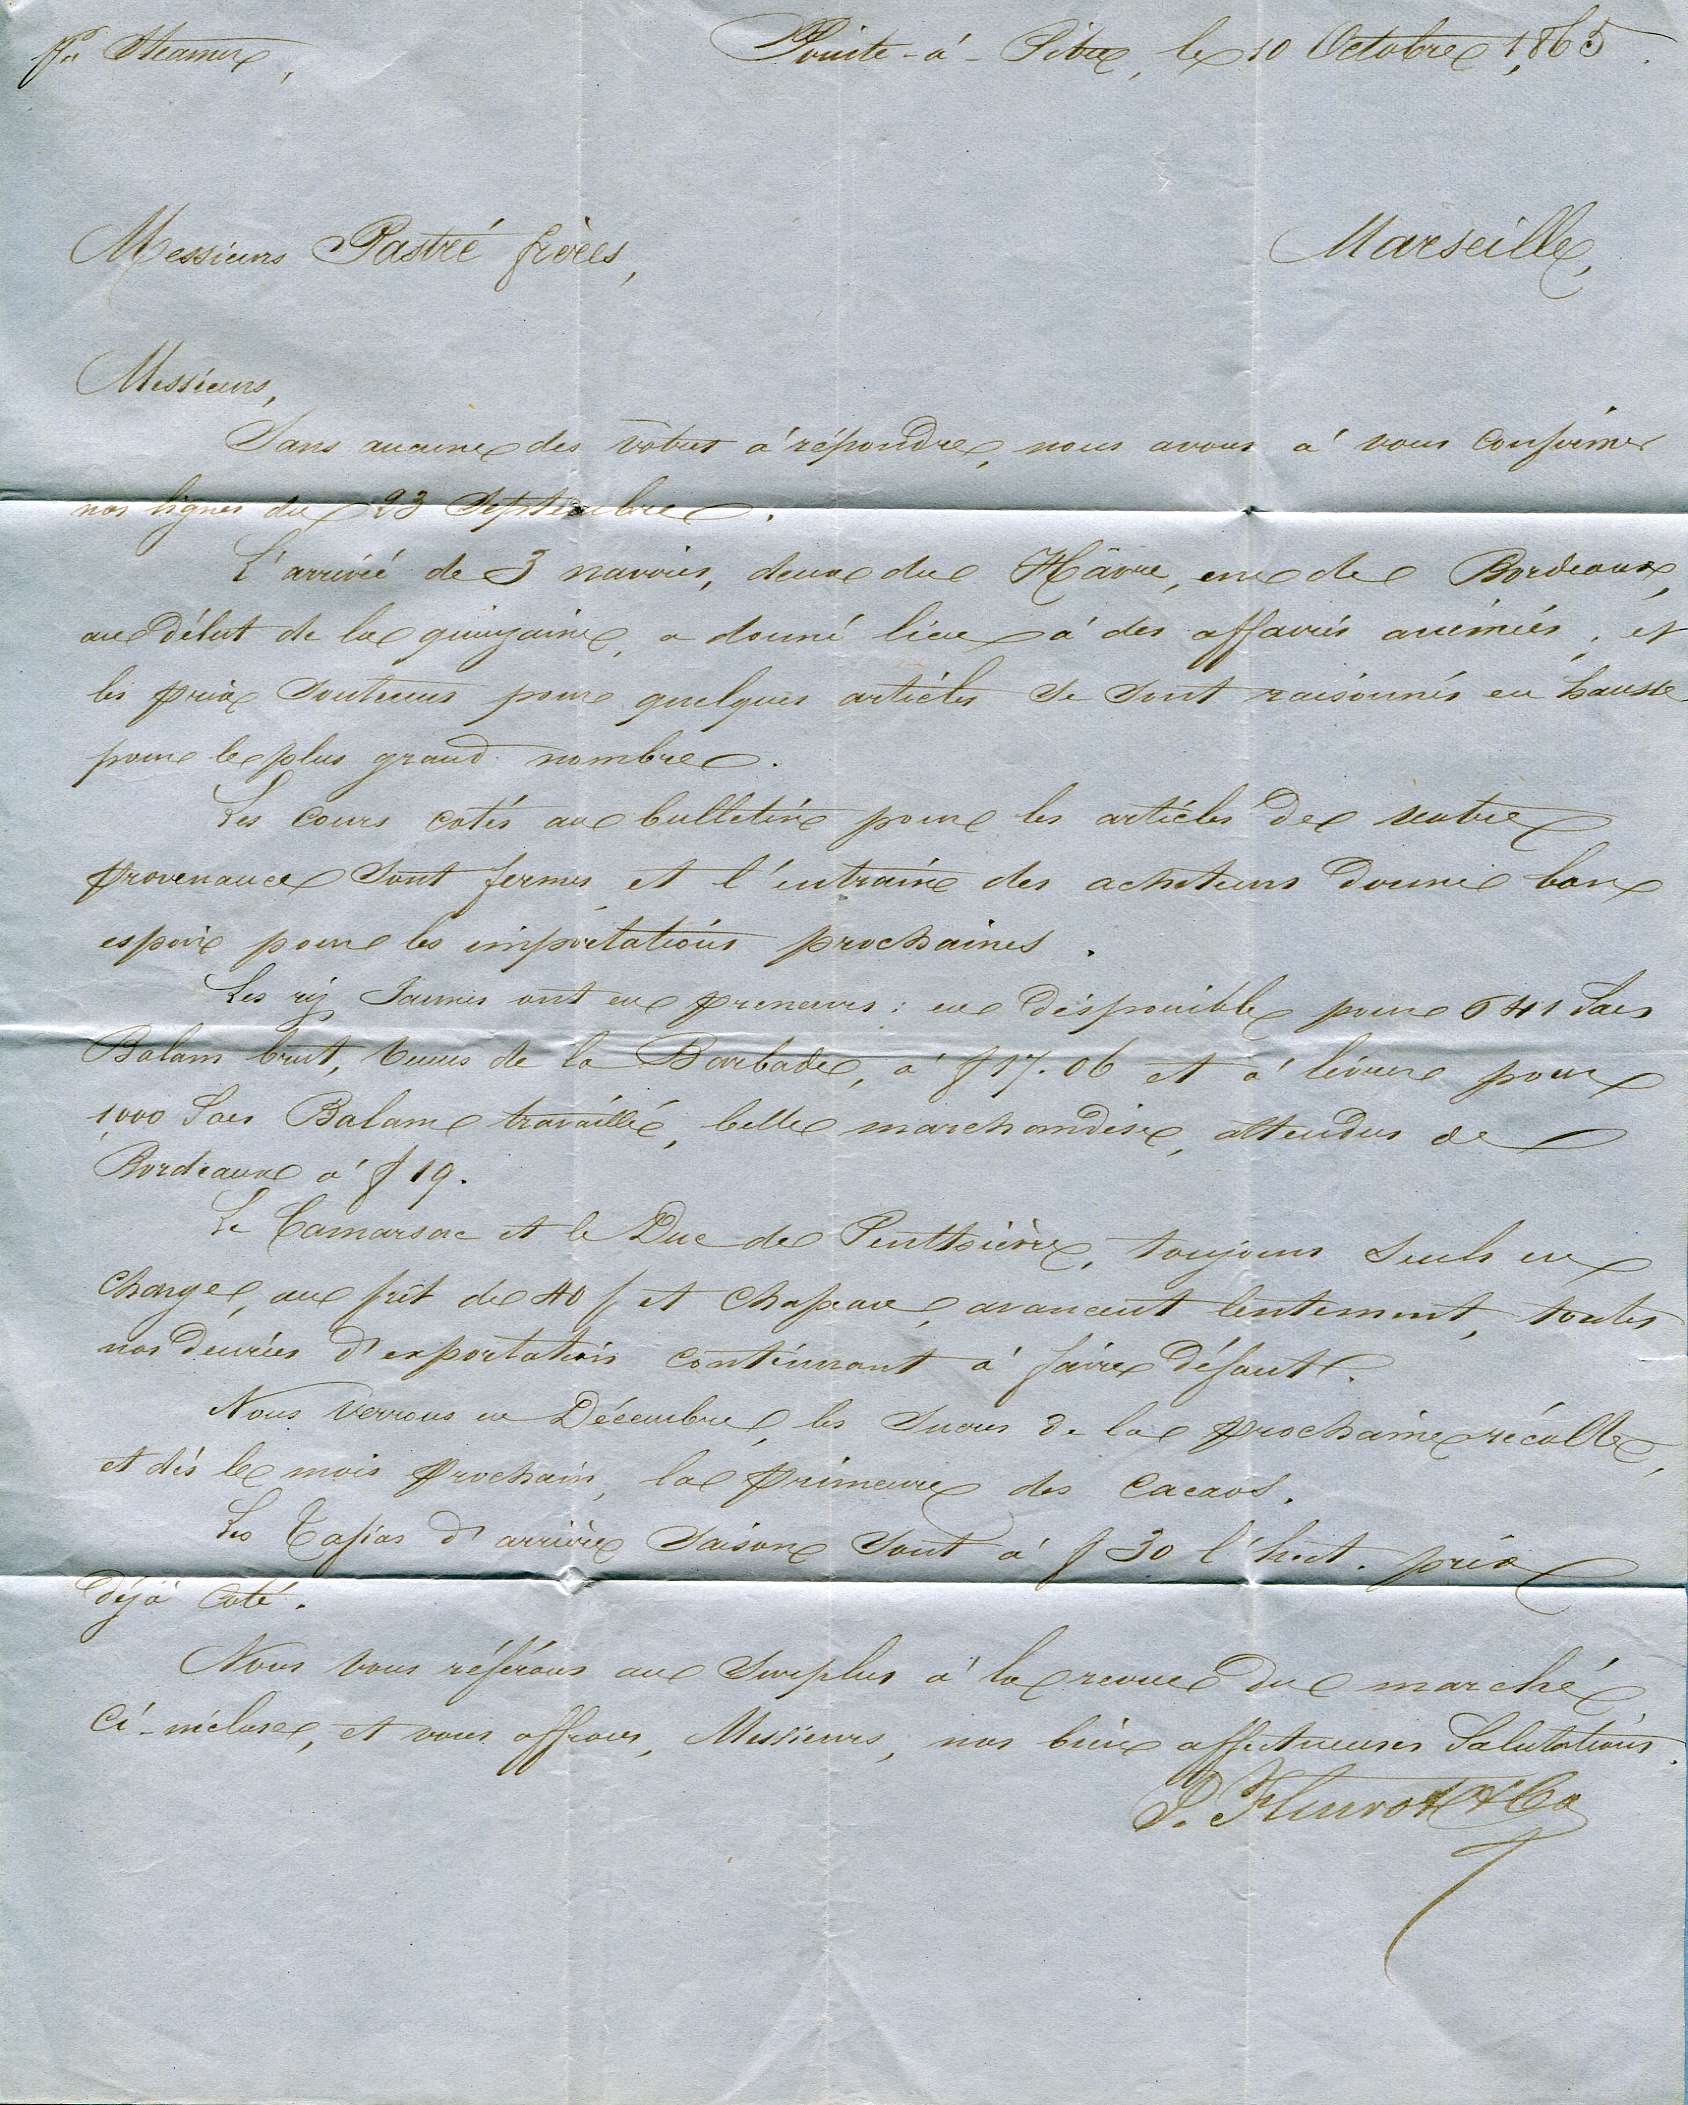 Pr Steamer,
Pointe-à-Pitre, le 10 Octobre 1,865.
Messieurs Pastré frères,
Marseille,
Messieurs,
Sans aucune des vôtres à répondre, nous avons à vous confirmer
nos lignes du 23 Septembre.
L'arrivée de 3 navires, deux du Hâvre, un de Bordeaux,
au début de la quinzaine, a donné lieu à des affaires animées, et
les prix soutenus pour quelques articles se sont raisonnés en hausse
pour le plus grand nombre.
Les cours cotés au bulletin pour les articles de votre
provenance sont fermes et l'entrain des acheteurs donne bon
espoir pour les importations prochaines.
Les riz Jaunes ont eu preneurs : en disponible pour 641 Sacs
Balam brut, venus de la Barbade, à f 17.06 et à livrer pour
1,000 Sacs Balam travaillé, belle marchandise, attendus de
Bordeaux à f 19.
Le Camarsac et le Duc de Penthièvre, toujours seuls en
charge, au frêt de 40 f et chapeau, avancent lentement, toutes
nos denrées d'exportation continuant à faire défaut.
Nous verrons en Décembre, les Sucres de la prochaine récolte,
et dès le mois prochain, la primeur des cacaos.
Les Tafias d'arrière saison sont à f 30 l'hect. prix
déjà coté.
Nous vous référons au surplus à la revue du marché
ci-incluse, et vous offrons, Messieurs, nos bien affectueuses Salutations.
& Co